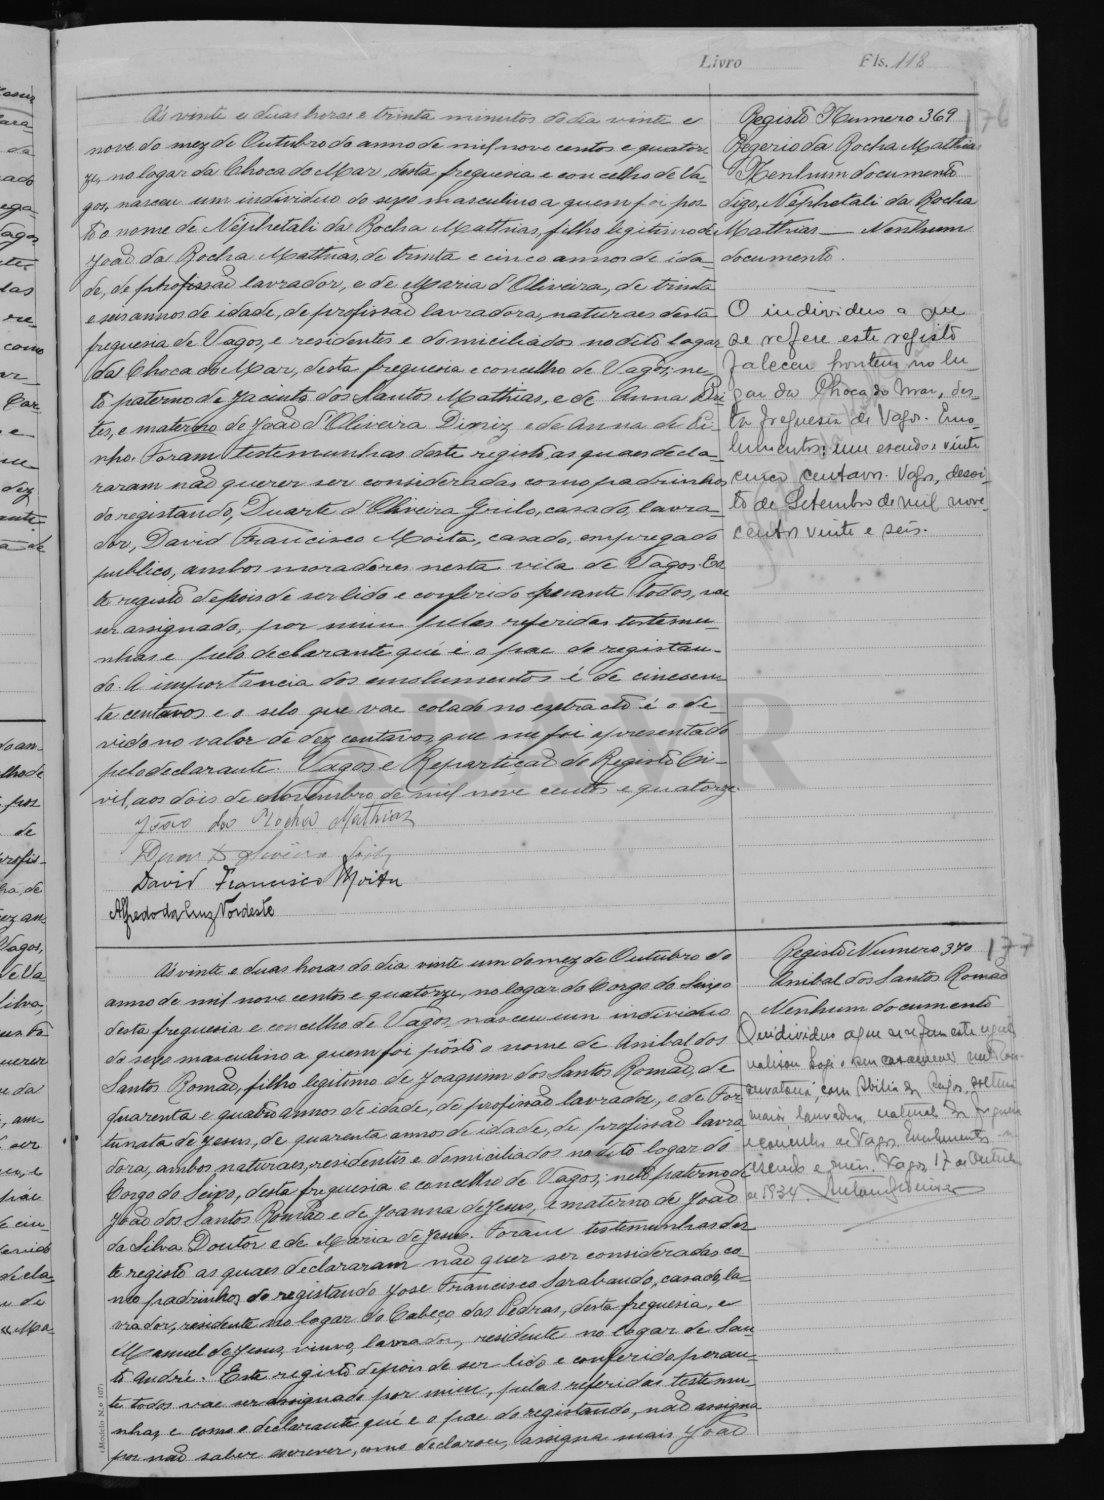 Livro Fls. 118
Registo Numero 369
176
Rogerio da Rocha Mathias
Nenhum documento
digo, Néphetali da Rocha
Mathias — Nenhum
documento.
O individuo a que
se refere este registo
faleceu hontem no lu-
gar da Choca do Mar, des-
ta freguesia de Vagos. Emo-
lumentos: um escudo e vinte
cinco centavos. Vagos, dezoi-
to de Setembro de mil nove-
centos vinte e seis.
Ás vinte e duas horas e trinta minutos do dia vinte e
nove do mez de Outubro do anno de mil nove centos e quator-
ze, no logar da Choca do Mar, desta freguesia e concelho de Va-
gos, nasceu um individuo do sexo masculino a quem foi pos-
to o nome de Néphetali da Rocha Mathias, filho legitimo de
João da Rocha Mathias, de trinta e cinco annos de ida-
de, de profissão lavrador, e de Maria d'Oliveira, de trinta
e seis annos de idade, de profissão lavradora, naturaes desta
freguesia de Vagos, e residentes e domiciliados no dito logar
da Choca do Mar, desta freguesia e concelho de Vagos; ne-
to paterno de Jacinto dos Santos Mathias, e de Anna
e materno de João d'Oliveira Diniz e de Anna de Pi-
nho. Foram testemunhas deste registo, as quaes decla-
raram não querer ser consideradas como padrinhos
do registando, Duarte d'Oliveira Grilo, casado, lavra-
dor, David Francisco Moita, casado, empregado
publico, ambos moradores nesta vila de Vagos. Es-
te registo depois de ser lido e conferido perante todos, vae
ser assignado, por mim pelas referidas testemu-
nhas e pelo declarante que é o pae do registan-
do. A importancia dos emolumentos é de cincoen-
ta centavos e o selo que vae colado no extracto é o de-
vido no valor de dez centavos, que me foi apresentado
pelo declarante. Vagos e Repartição do Registo Ci-
vil, aos dois de Novembro de mil nove centos e quatorze.
João da Rocha Mathias
David Francisco Moita
Alfredo da Cruz Nordeste
DAVR
Registo Numero 370
177
Anibal dos Santos Romão
Nenhum documento
O individuo a que se refere este registo
realisou hoje o seu casamento
com Abilia de Jesus, solteira
maior, lavradeira, natural da freguesia
e concelho de Vagos. Emolumentos
escudo e meio. Vagos, 17 de Outubro
de 1934.
Ás vinte e duas horas do dia vinte um do mez de Outubro do
anno de mil nove centos e quatorze, no logar do Corgo do Seixo
desta freguesia e concelho de Vagos, nasceu um individuo
do sexo masculino a quem foi pôsto o nome de Anibal dos
Santos Romão, filho legitimo de Joaquim dos Santos Romão, de
quarenta e quatro annos de idade, de profissão lavrador, e de For-
tunata de Jesus, de quarenta annos de idade, de profissão lavra-
dora, ambos naturaes, residentes e domiciliados no dito logar do
Corgo do Seixo, desta freguesia e concelho de Vagos; neto paterno de
João dos Santos Romão e de Joanna de Jesus, e materno de João
da Silva Doutor e de Maria de Jesus. Foram testemunhas des-
te registo as quaes declararam não quer ser consideradas co-
mo padrinhos do registando José Francisco Sarabando, casado, la-
vrador, residente no logar do Cabeço das Pedras, desta freguesia, e
Manuel de Jesus, viuvo, lavrador, residente no logar de San-
to André. Este registo depois de ser lido e conferido peran-
te todos vae ser assignado por mim, pelas referidas testemu-
nhas, e como o declarante que é o pae do registando, não assigna
por não saber escrever, como declarou, assigna mais João
(Modelo N.º 107)